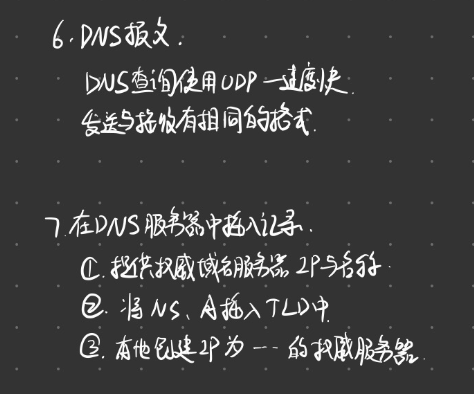 6. DNS报文.
DNS查询使用UDP—速度快.
发送与接收有相同的格式.
7. 在DNS服务器中插入记录.
①. 提供权威域名服务器IP与名称.
②. 将NS、A插入TLD中
③. 本地创建IP为---的权威服务器.